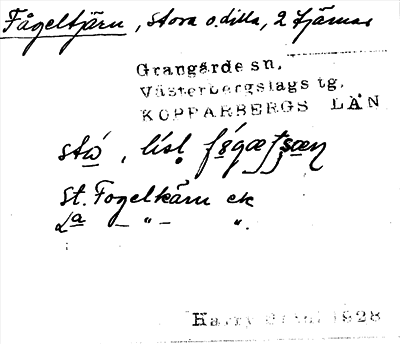 Fågeltjärn, Stora o. dilla, 2 tjärnar
Grangärde sn,
Västerbergslags tg,
KOPPARBERGS LÄN
sta , lisl
St. Fogelkärn ek
La – " – ".
Harry 1928